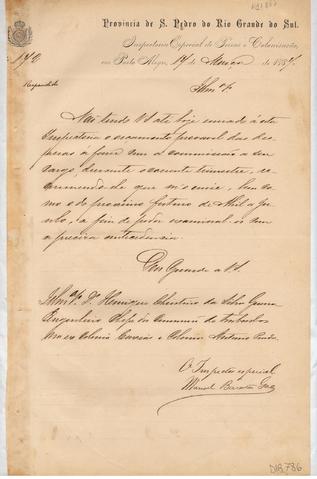 Provincia de S. Pedro do Rio Grande do Sul.
Inspectoria Especial de Terras e Colonisação,
em Porto Alegre, 14 de Março de 188
Respondido
Illm.º Sr.
Não tendo V.S. até hoje enviado a esta
Inspectoria o orçamento provavel das des
pesas a fazer com a commissão a seu
cargo, durante o corrente trimestre, re
commendo-lhe que m'o envie, bem co
mo o do proximo futuro de Abril a Ju
nho, a fim de poder examinal-os com
a precisa antecedencia.
Deus Guarde a V.S.
Illm.º Sr. Dr. Henrique Christino da Silva
Engenheiro Chefe da Commissão de trabalhos
Colonia Caxias e Colonia Antonio Prado.
O Inspector especial
Manoel
DIB,786